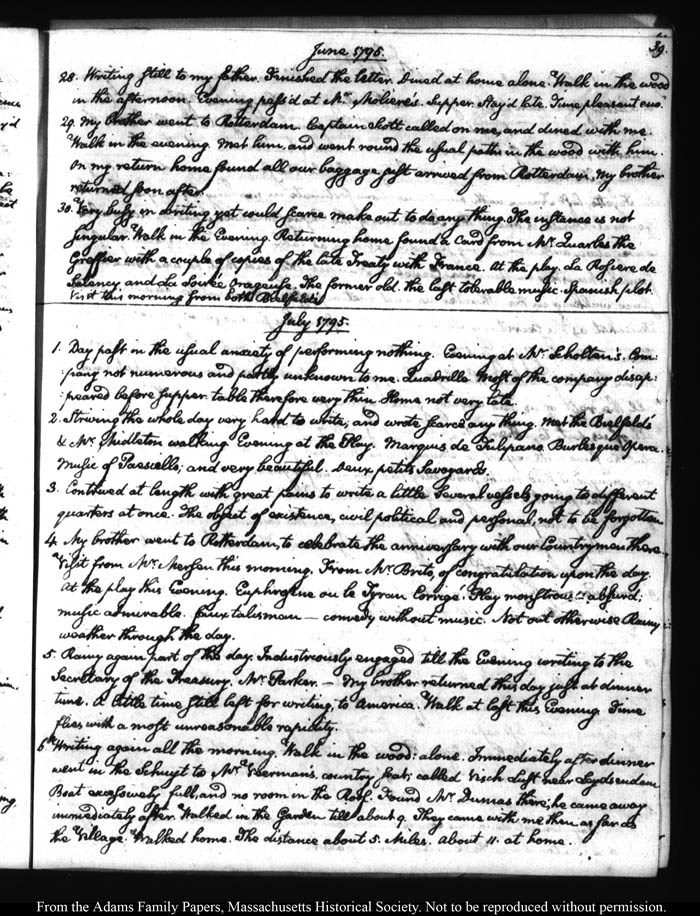 39.
June 1795.
28. Writing still to my father. Finished the letter. Dined at home alone. Walk in the wood
in the afternoon. Evening pass'd at Mr. Moliere's. Supper. Stay'd late. Time pleasant eno'.
29. My brother went to Rotterdam. Captain Scott called on me, and dined with me.
Walk in the evening. Met him, and went round the usual path in the wood with him.
On my return home found all our baggage just arrived from Rotterdam. My brother
returned soon after.
30. Very busy in writing yet could scarce make out to do any thing. The instance is not
singular. Walk in the Evening. Returning home found a Card from Mr. Quarles the
Greffier with a couple of copies of the late Treaty with France. At the play. La Rosiere de
Salency, and La Soirée Orageuse. The former old. the last tolerable music. Spanish plot.
Visit this morning from both Bielfelds
July 1795.
1. Day past in the usual anxiety of performing nothing. Evening at Mr. Scholten's. Com-
pany not numerous and partly unknown to me. Quadrille. Most of the company disap-
peared before supper. table therefore very thin. Home not very late.
2. Striving the whole day very hard to write, and wrote scarce any thing. Met the Bielfelds
& Mr. Midleton walking. Evening at the Play. Marquis de Tulipano. Burlesque Opera.
Music of Paesiello, and very beautiful. Deux petits Savoyards.
3. Contrived at length with great pains to write a little. Several vessels going to different
quarters at once. The object of existence, civil political and personal, not to be forgotten
4. My brother went to Rotterdam, to celebrate the anniversary with our Countrymen there.
Visit from Mr. Mersen this morning. From Mr. Brito, of congratulation upon the day.
At the play this Evening. Euphrosine ou le Tyran Corrigé. Play monstrously absurd:
music admirable. faux talisman — comedy without music. Not out otherwise Rainy
weather through the day.
5. Rainy again part of the day. Industriously engaged till the Evening writing to the
Secretary of the Treasury. Mr. Parker. — My brother returned this day just at dinner
time. A little time still left for writing, to America. Walk at last this Evening. Time
flies with a most unreasonable rapidity.
6th Writing again all the morning. Walk in the wood: alone. Immediately after dinner
went in the Schuyt to Mr. Veerman's, country seat; called Visch Lust near Leydsendam
Boat excessively full, and no room in the Roof. Found Mr. Dumas there; he came away
immediately after. Walked in the Garden till about 9. They came with me then as far as
the Village. Walked home. The distance about 5. Miles. About 11. at home.
From the Adams Family Papers, Massachusetts Historical Society. Not to be reproduced without permission.